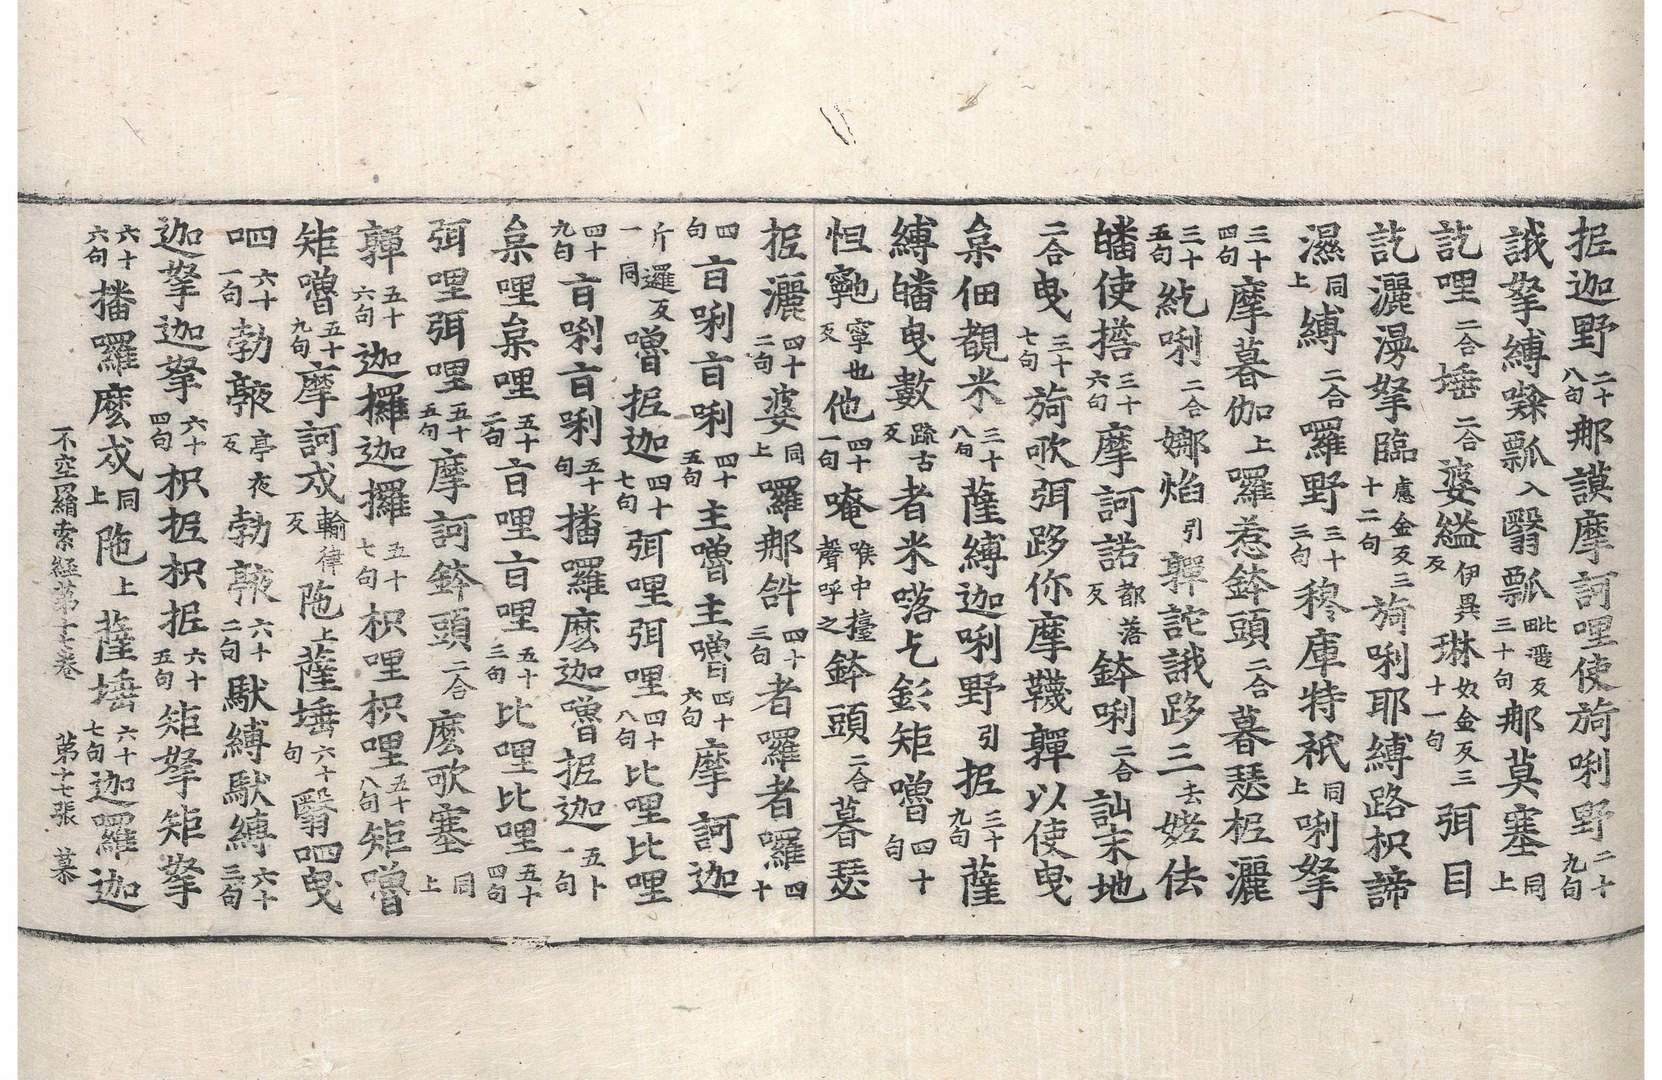 抳迦野二十八句那謨摩訶哩使旖唎野二十九句
誐拏縛㘑瓢入翳瓢毗遥反三十句那莫塞同上
訖哩二合埵二合婆縊伊異反琳奴金反三十一句弭目
訖灑溋拏臨應金反三十二句旖唎耶縛路枳諦
濕同上縛二合羅野三十三句穇庫特祇同上唎拏
三十四句摩暮伽上囉惹鉢頭二合暮瑟柅灑
三十五句紇唎二合娜焰引嚲詑誐跢三去姥佉
皤使撘三十六句摩訶諾都落反鉢唎二合訕末地
二合曳三十七句旖歌弭跢你摩韈嚲以使曳
枲佃覩米三十八句薩縛迦唎野引抳三十九句薩
縛皤曳數疏古反者米㗉乞釤矩嚕四十句
怛𪐀寧也反他四十一句唵喉中擡聲呼之鉢頭二合暮瑟
抳灑四十二句婆同上囉那䛎四十三句者羅者囉四十
四句亩唎亩唎四十五句主嚕主嚕四十六句摩訶迦
嚕抳迦四十七句弭哩弭哩四十八句比哩比哩
四十九句亩唎亩唎五十句播羅麽迦嚕抳迦五十一句
枲哩枲哩五十二句亩哩亩哩五十三句比哩比哩五十四句
弭哩弭哩五十五句摩訶鉢頭二合麽歌塞同上
嚲五十六句迦攞迦攞五十七句枳哩枳哩五十八句矩嚕
矩嚕五十九句摩訶戍輸律反陁上薩埵六十句翳呬曳
呬六十一句勃𩐨亭夜反勃𩐨六十二句馱縛馱縛六十三句
迦拏迦拏六十四句枳抳枳抳六十五句矩拏矩拏
六十六句播羅麽戍同上陁上薩埵六十七句迦羅迦
不空羂索經第十七卷 第十七張 慕